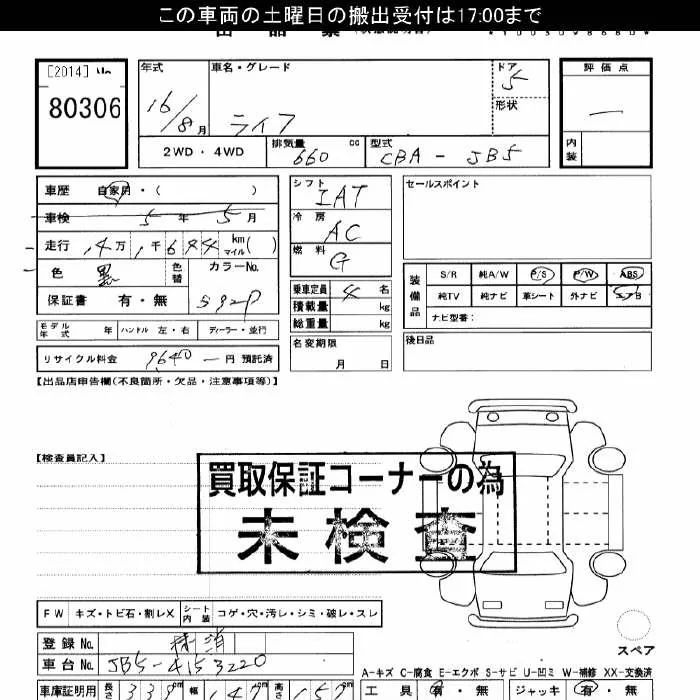 この車両の土曜日の搬出受付は17:00まで
[2014]
80306
年式
16/8月
車名・グレード
ライフ
ドア
5
形状
評価点
—
内装
2WD・4WD
排気量
660 cc
型式
CBA - JB5
車歴 自家用・( )
車検 5年 5月
走行 14万1千644 km マイル( )
色 黒 色替
カラーNo.
592P
保証書 有・無
モデル年式 年 ハンドル 左・右 ディーラー・並行
リサイクル料金 9640 — 円 預託済
シフト
IAT
冷房
AC
燃料
G
乗車定員 4 名
積載量 kg
総重量 kg
名変期限
月 日
セールスポイント
装備品
S/R 純A/W P/S P/W ABS
純TV 純ナビ 革シート 外ナビ
ナビ型番:
後日品
【出品店申告欄(不良箇所・欠品・注意事項等)】
【検査員記入】
買取保証コーナーの為
未検査
FW キズ・トビ石・割レX シート内装 コゲ・穴・汚レ・シミ・破レ・スレ
スペア
登録No. 抹消
車台No. JB5-4153220
A-キズ C-腐食 E-エクボ S-サビ U-凹ミ W-補修 XX-交換済
車庫証明用 長さ 339 cm 幅 147 cm 高さ 157 cm
工具 有・無 ジャッキ 有・無